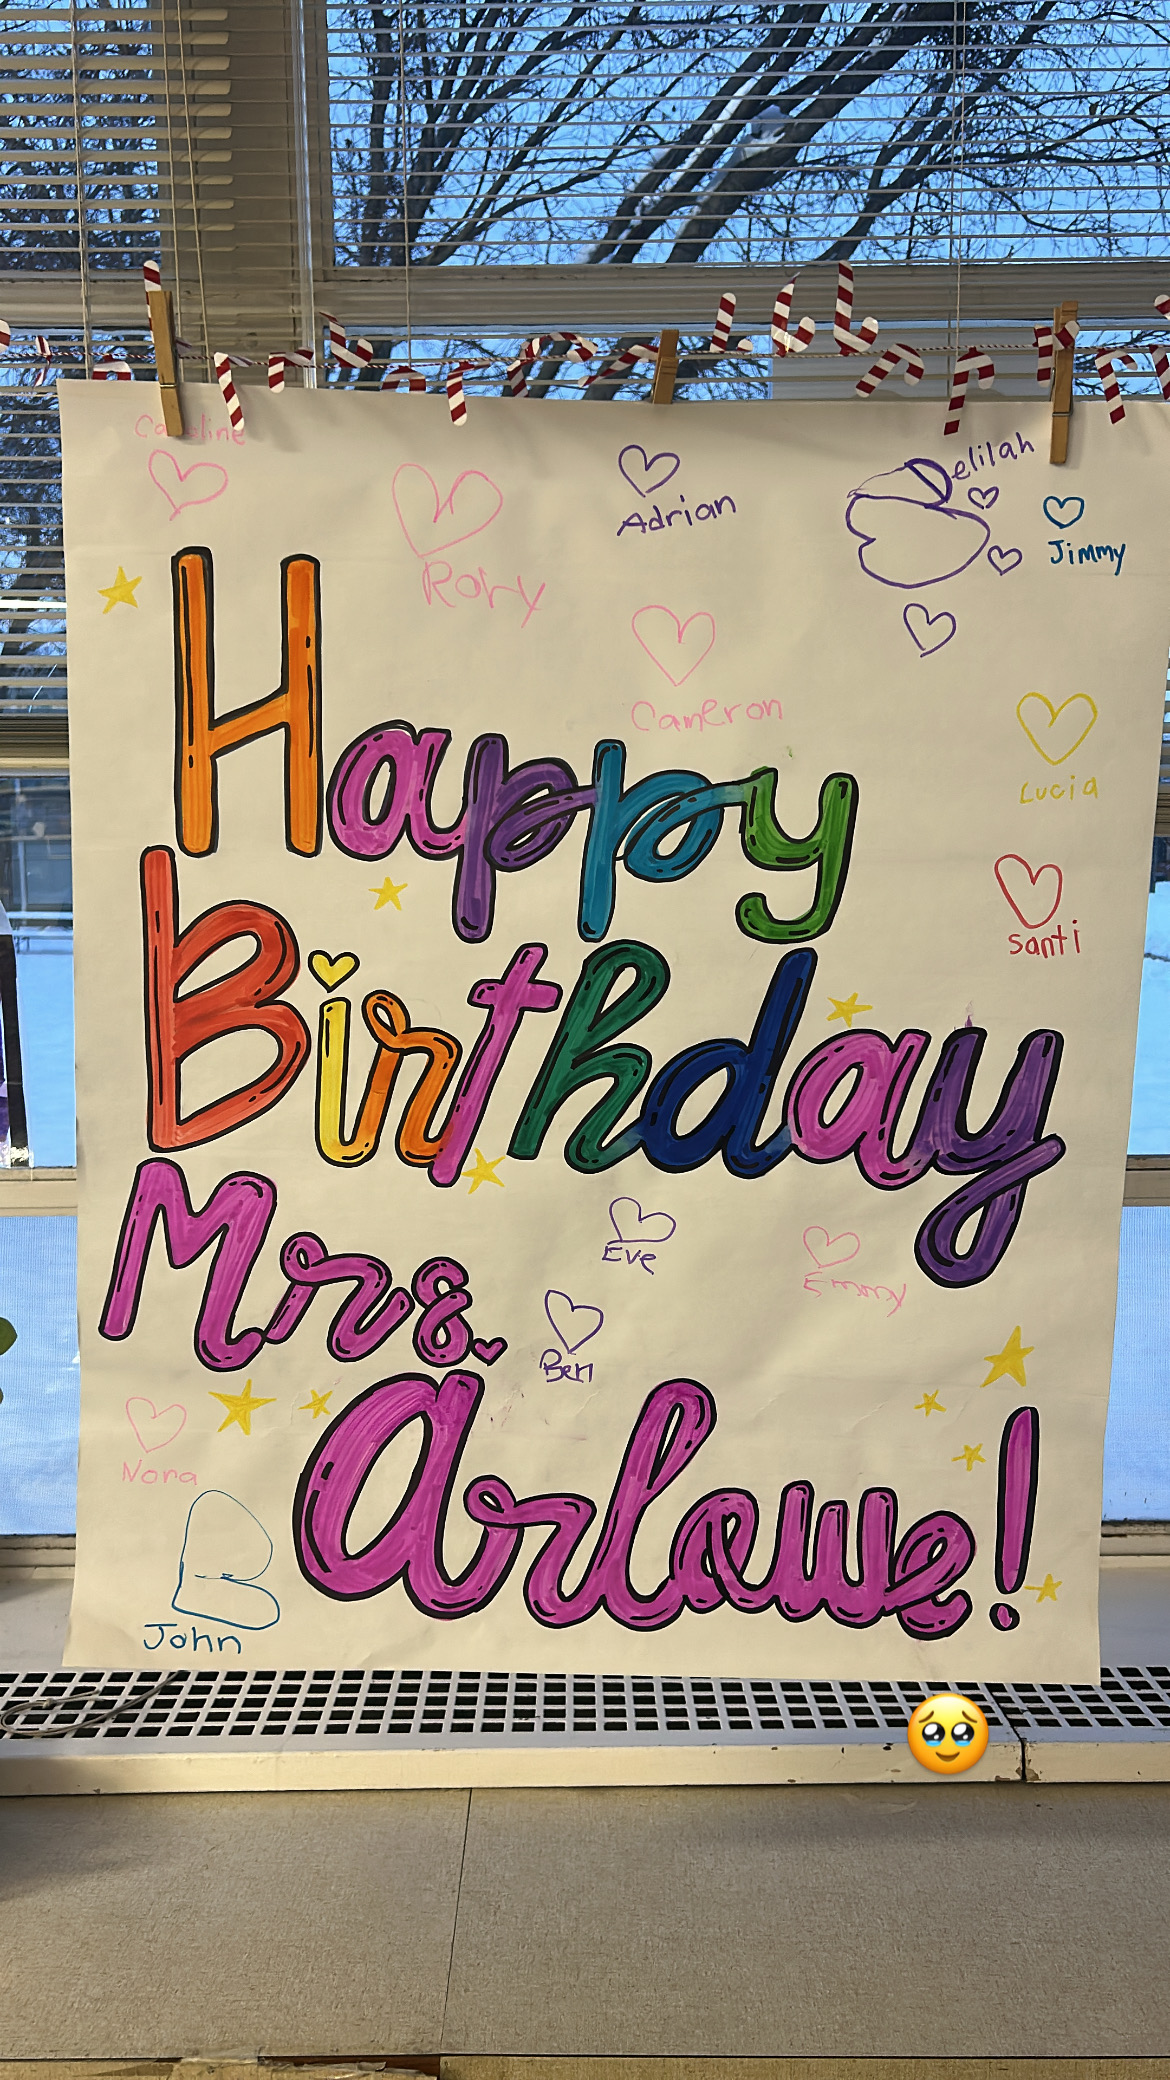 Caroline
Rory
Adrian
Delilah
Jimmy
Cameron
Lucia
Santi
Happy
Birthday
Mrs.
Arlowe!
Eve
Emmy
Ben
Nora
John